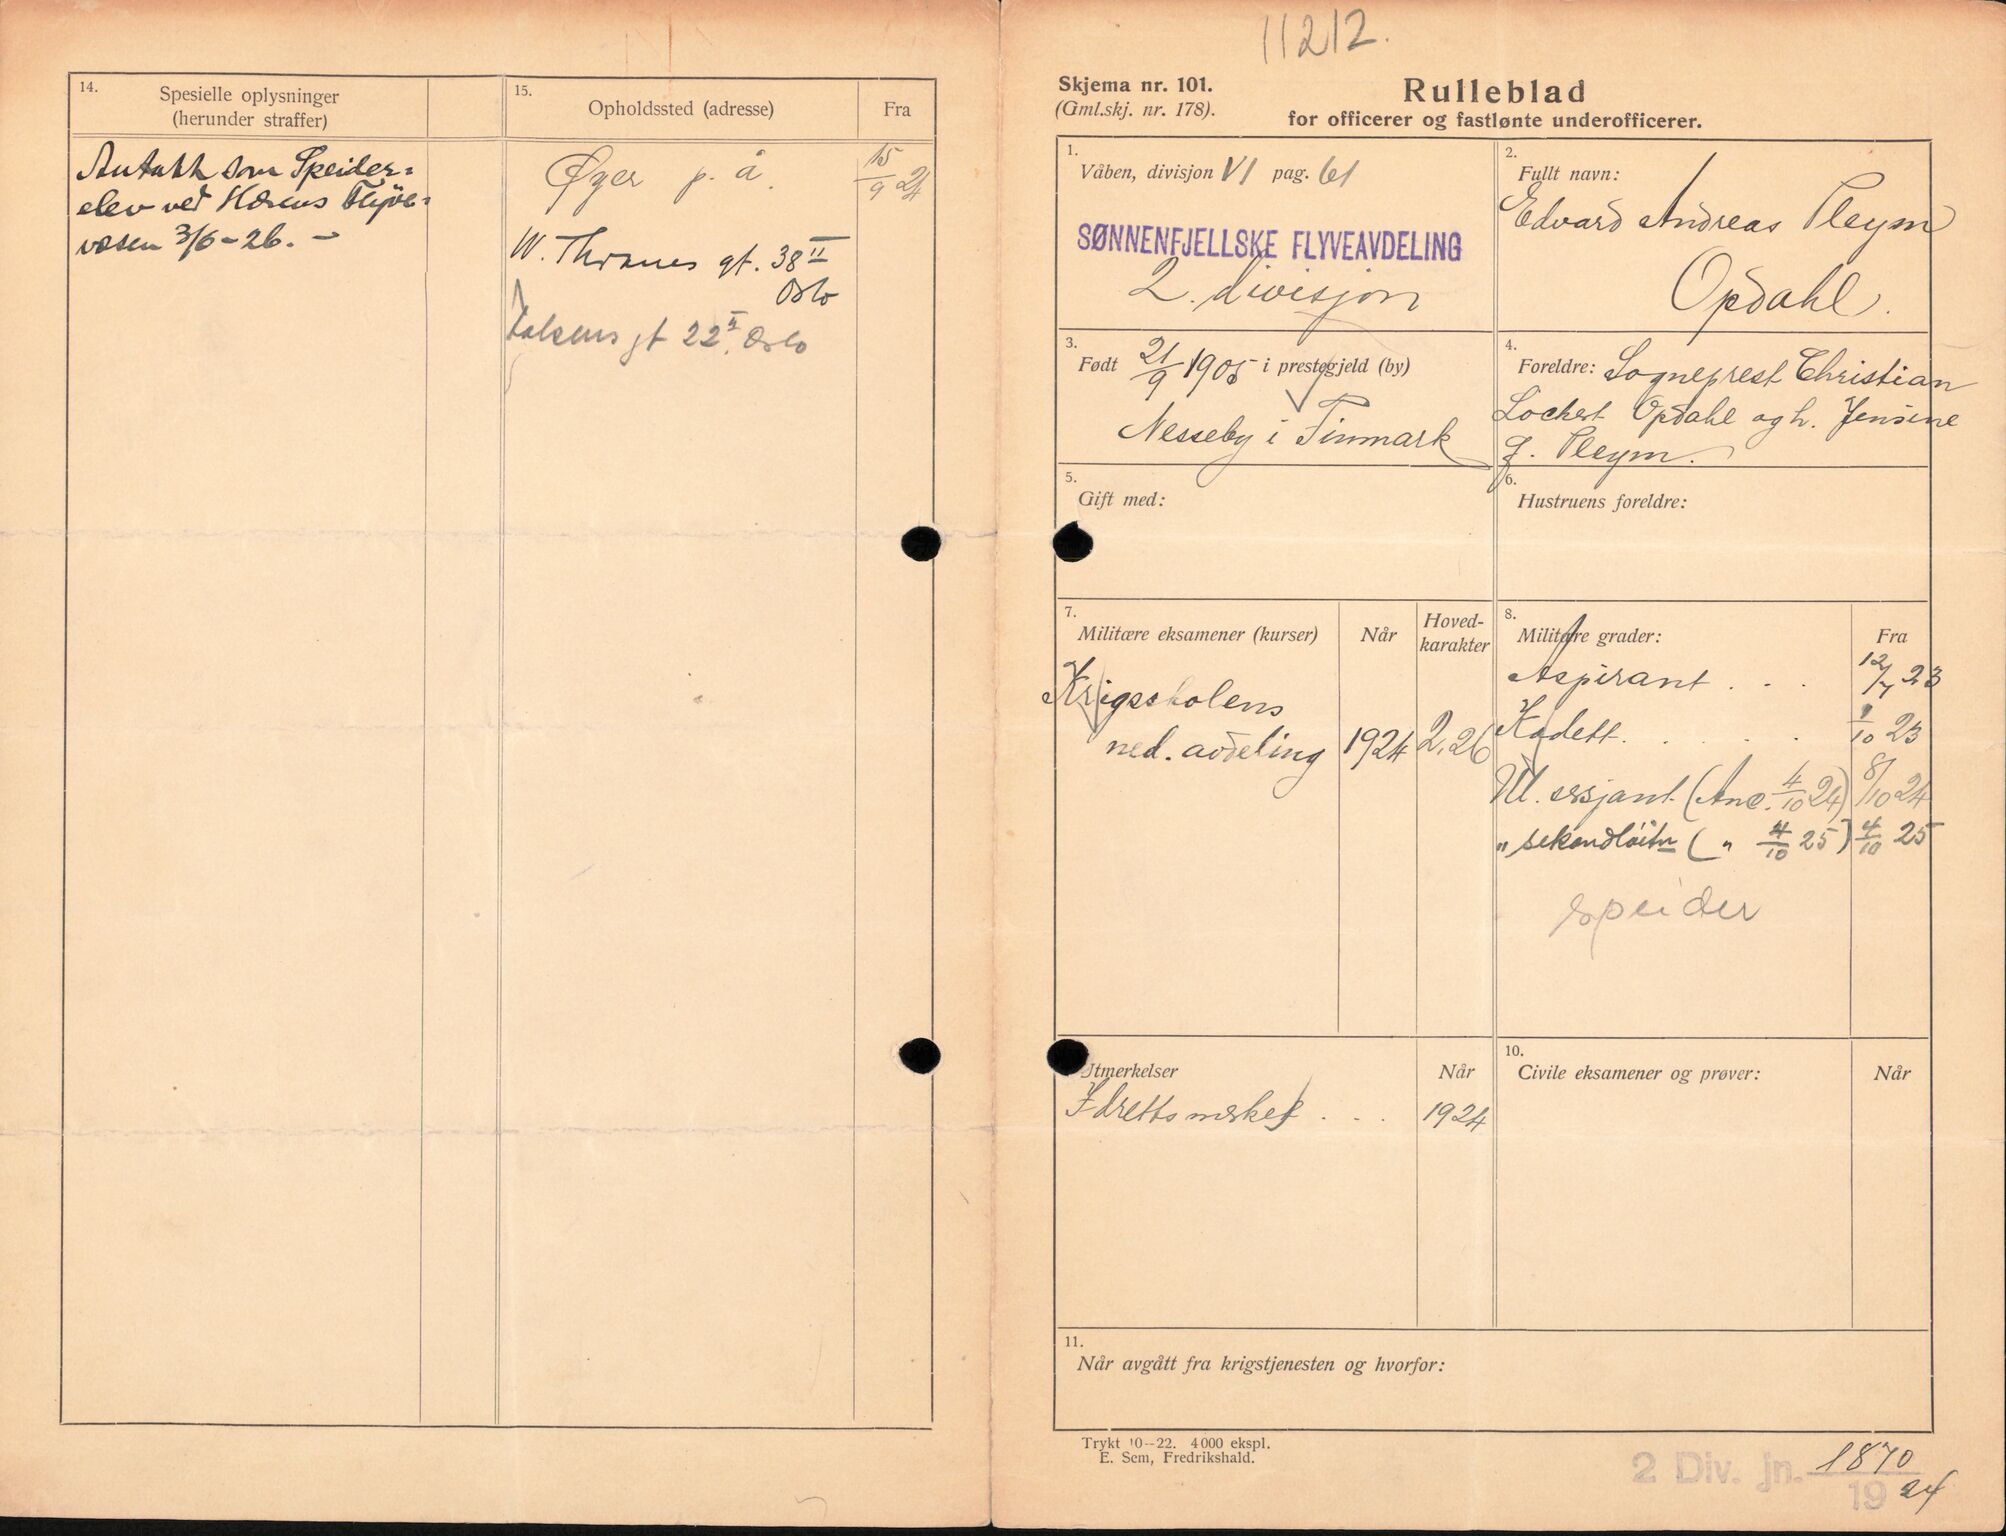 14.
Spesielle oplysninger
(herunder straffer)
Antatt som Speider-
elev ved Hærens Flyve-
vesen 3/6-26. -
15.
Opholdssted (adresse)
Fra
Øyer p. å.
15/9 24
W. Thranes gt. 38 II
Oslo
gt 22 II, Oslo
11212.
Skjema nr. 101.
(Gml.skj. nr. 178).
Rulleblad
for officerer og fastlønte underofficerer.
1.
Våben, divisjon VI pag. 61
SØNNENFJELLSKE FLYVEAVDELING
2. divisjon
2.
Fullt navn:
Edvard Andreas Pleym
Opdahl.
3.
Født 21/9 1905 i prestegjeld (by)
Nesseby i Finmark
4.
Foreldre: Sogneprest Christian
Lochert Opdahl og h. Jensine
f. Pleym.
5.
Gift med:
6.
Hustruens foreldre:
7.
Militære eksamener (kurser)
Når
Hoved-
karakter
Krigsskolens
ned. avdeling 1924 2,26
8.
Militære grader:
Fra
Aspirant . . . 12/7 23
Kadett . . . . . 1/10 23
Vl. sersjant (Anc. 4/10 24) 8/10 24
" sekondløitn (" 4/10 25) 4/10 25
speider
Utmerkelser
Når
Idrettsmerket . . . 1924
10.
Civile eksamener og prøver:
Når
11.
Når avgått fra krigstjenesten og hvorfor:
Trykt 10-22. 4000 ekspl.
E. Sem, Fredrikshald.
2 Div. jn. 1870
19 24